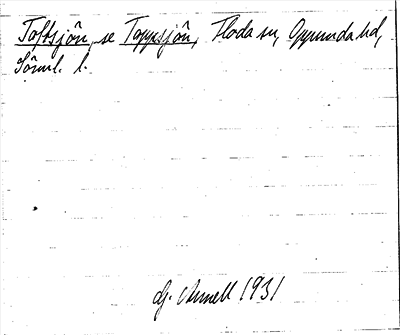 Toftsjön, se Toppsjön, Floda sn, Oppunda hd,
Sörml. l.
G. Annell 1931